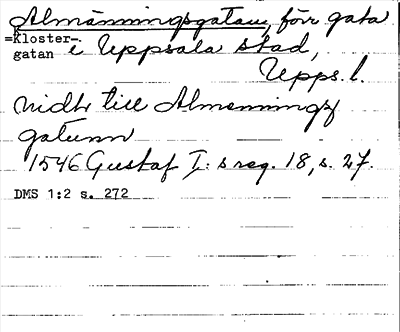 Almänningsgatan, förr gata
=Kloster-
gatan
i Uppsala stad,
Upps. l.
nidh till Almenningz
gatunn
1546 Gustaf I:s reg. 18, s. 27.
DMS 1:2 s. 272